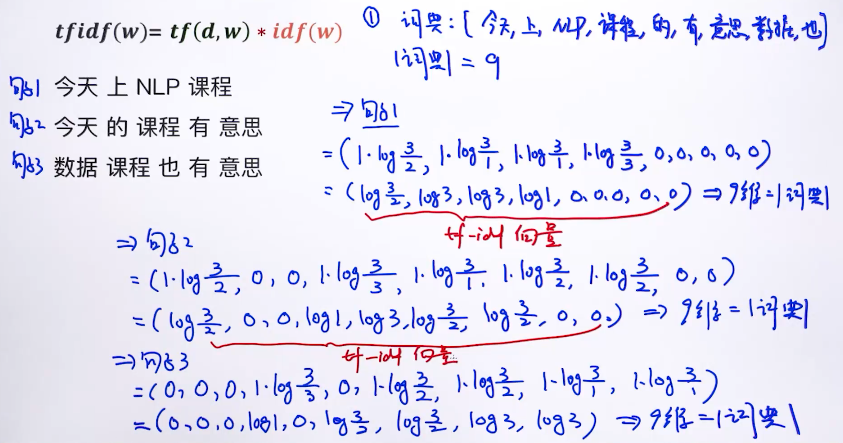 tfidf(w)= tf(d,w) * idf(w)
① 词典:[今天,上,NLP,课程,的,有,意思,数据,也]
|词典| = 9
句子1 今天 上 NLP 课程
句子2 今天 的 课程 有 意思
句子3 数据 课程 也 有 意思
⇒ 句子1
= (1·log 3/2, 1·log 3/1, 1·log 3/1, 1·log 3/3, 0, 0, 0, 0, 0)
= (log 3/2, log3, log3, log1, 0, 0, 0, 0, 0) ⇒ 9维=|词典|
tf-idf 向量
⇒ 句子2
= (1·log 3/2, 0, 0, 1·log 3/3, 1·log 3/1, 1·log 3/2, 1·log 3/2, 0, 0)
= (log 3/2, 0, 0, log1, log3, log 3/2, log 3/2, 0, 0) ⇒ 9维=|词典|
tf-idf 向量
⇒ 句子3
= (0, 0, 0, 1·log 3/3, 0, 1·log 3/2, 1·log 3/2, 1·log 3/1, 1·log 3/1)
= (0, 0, 0, log1, 0, log 3/2, log 3/2, log3, log3) ⇒ 9维=|词典|